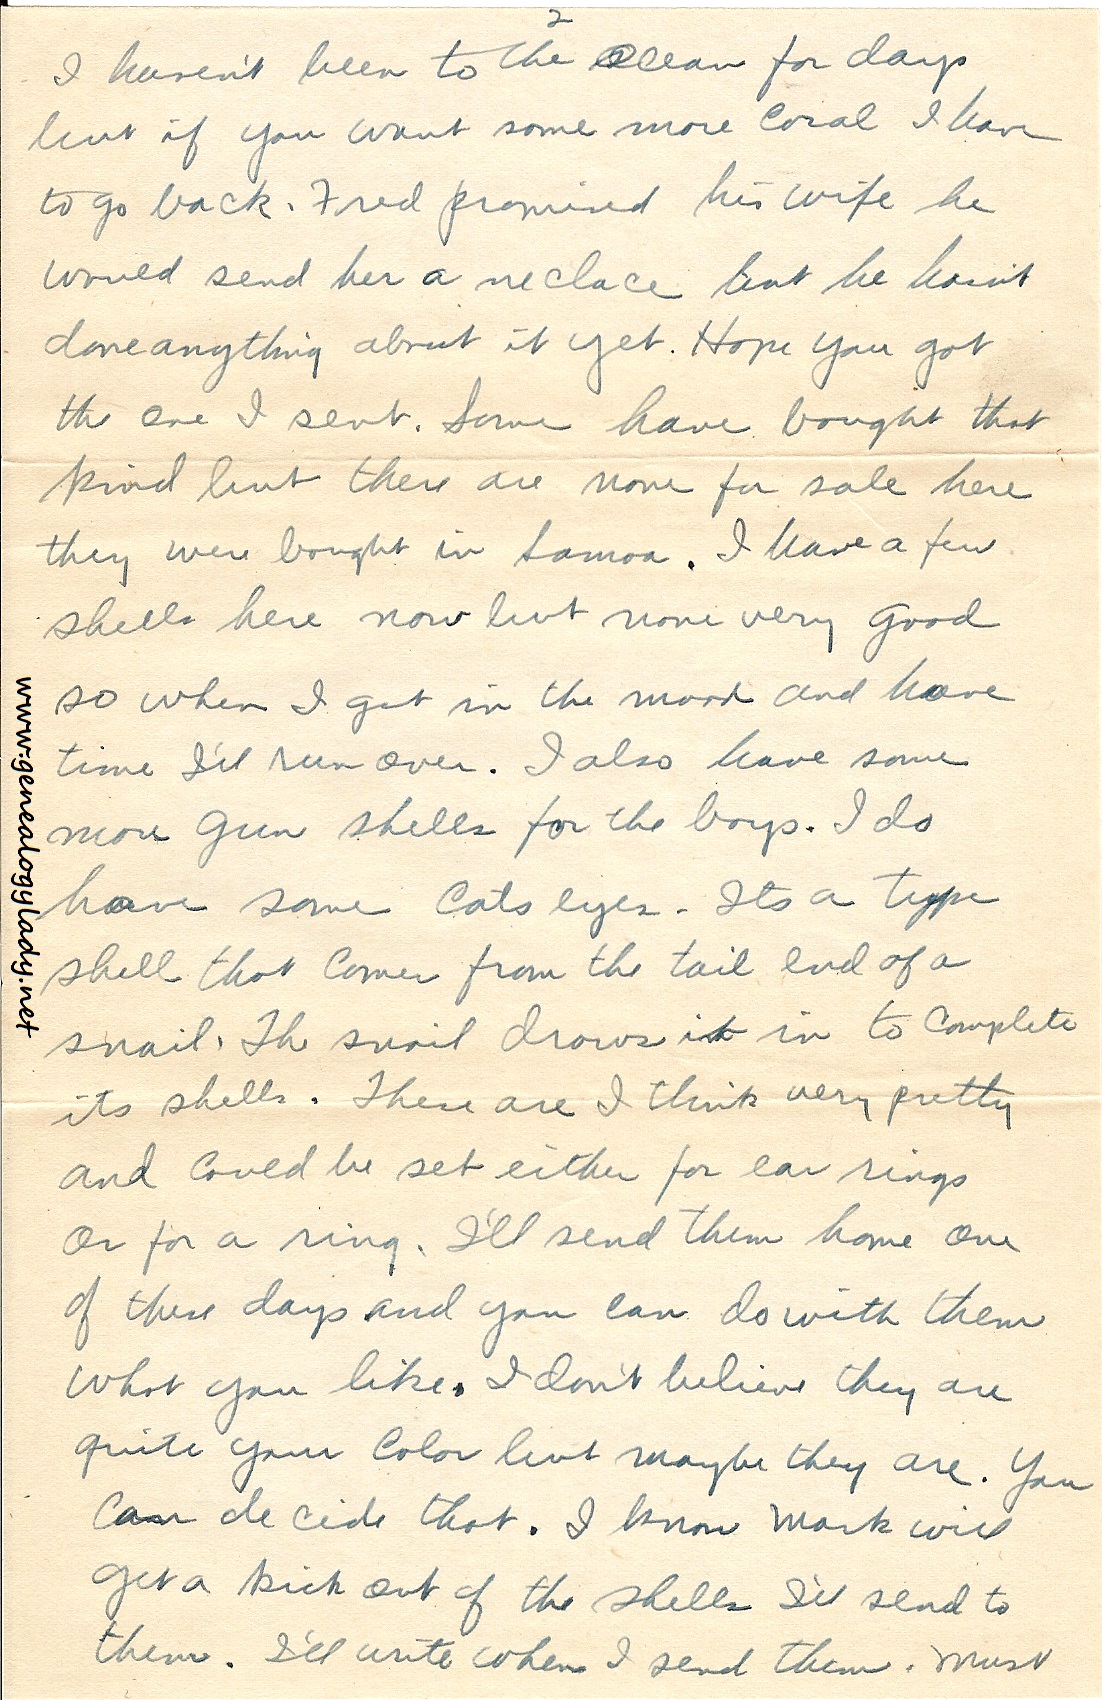 2
I haven't been to the Ocean for days
but if you want some more coral I have
to go back. Fred promised his wife he
would send her a neclace but he hasn't
done anything about it yet. Hope you got
the one I sent. Some have bought that
kind but there are none for sale here
they were bought in Samoa. I have a few
shells here now but none very good
so when I get in the mood and have
time I'll run over. I also have some
more gun shells for the boys. I do
have some Cats eyes. Its a type
shell that comes from the tail end of a
snail. The snail draws it in to complete
its shells. These are I think very pretty
and could be set either for ear rings
or for a ring. I'll send them home one
of these days and you can do with them
what you like. I don't believe they are
quite your color but maybe they are. You
can decide that. I know Mark will
get a kick out of the shells I'll send to
them. I'll write when I send them. Must
www.genealogylady.net